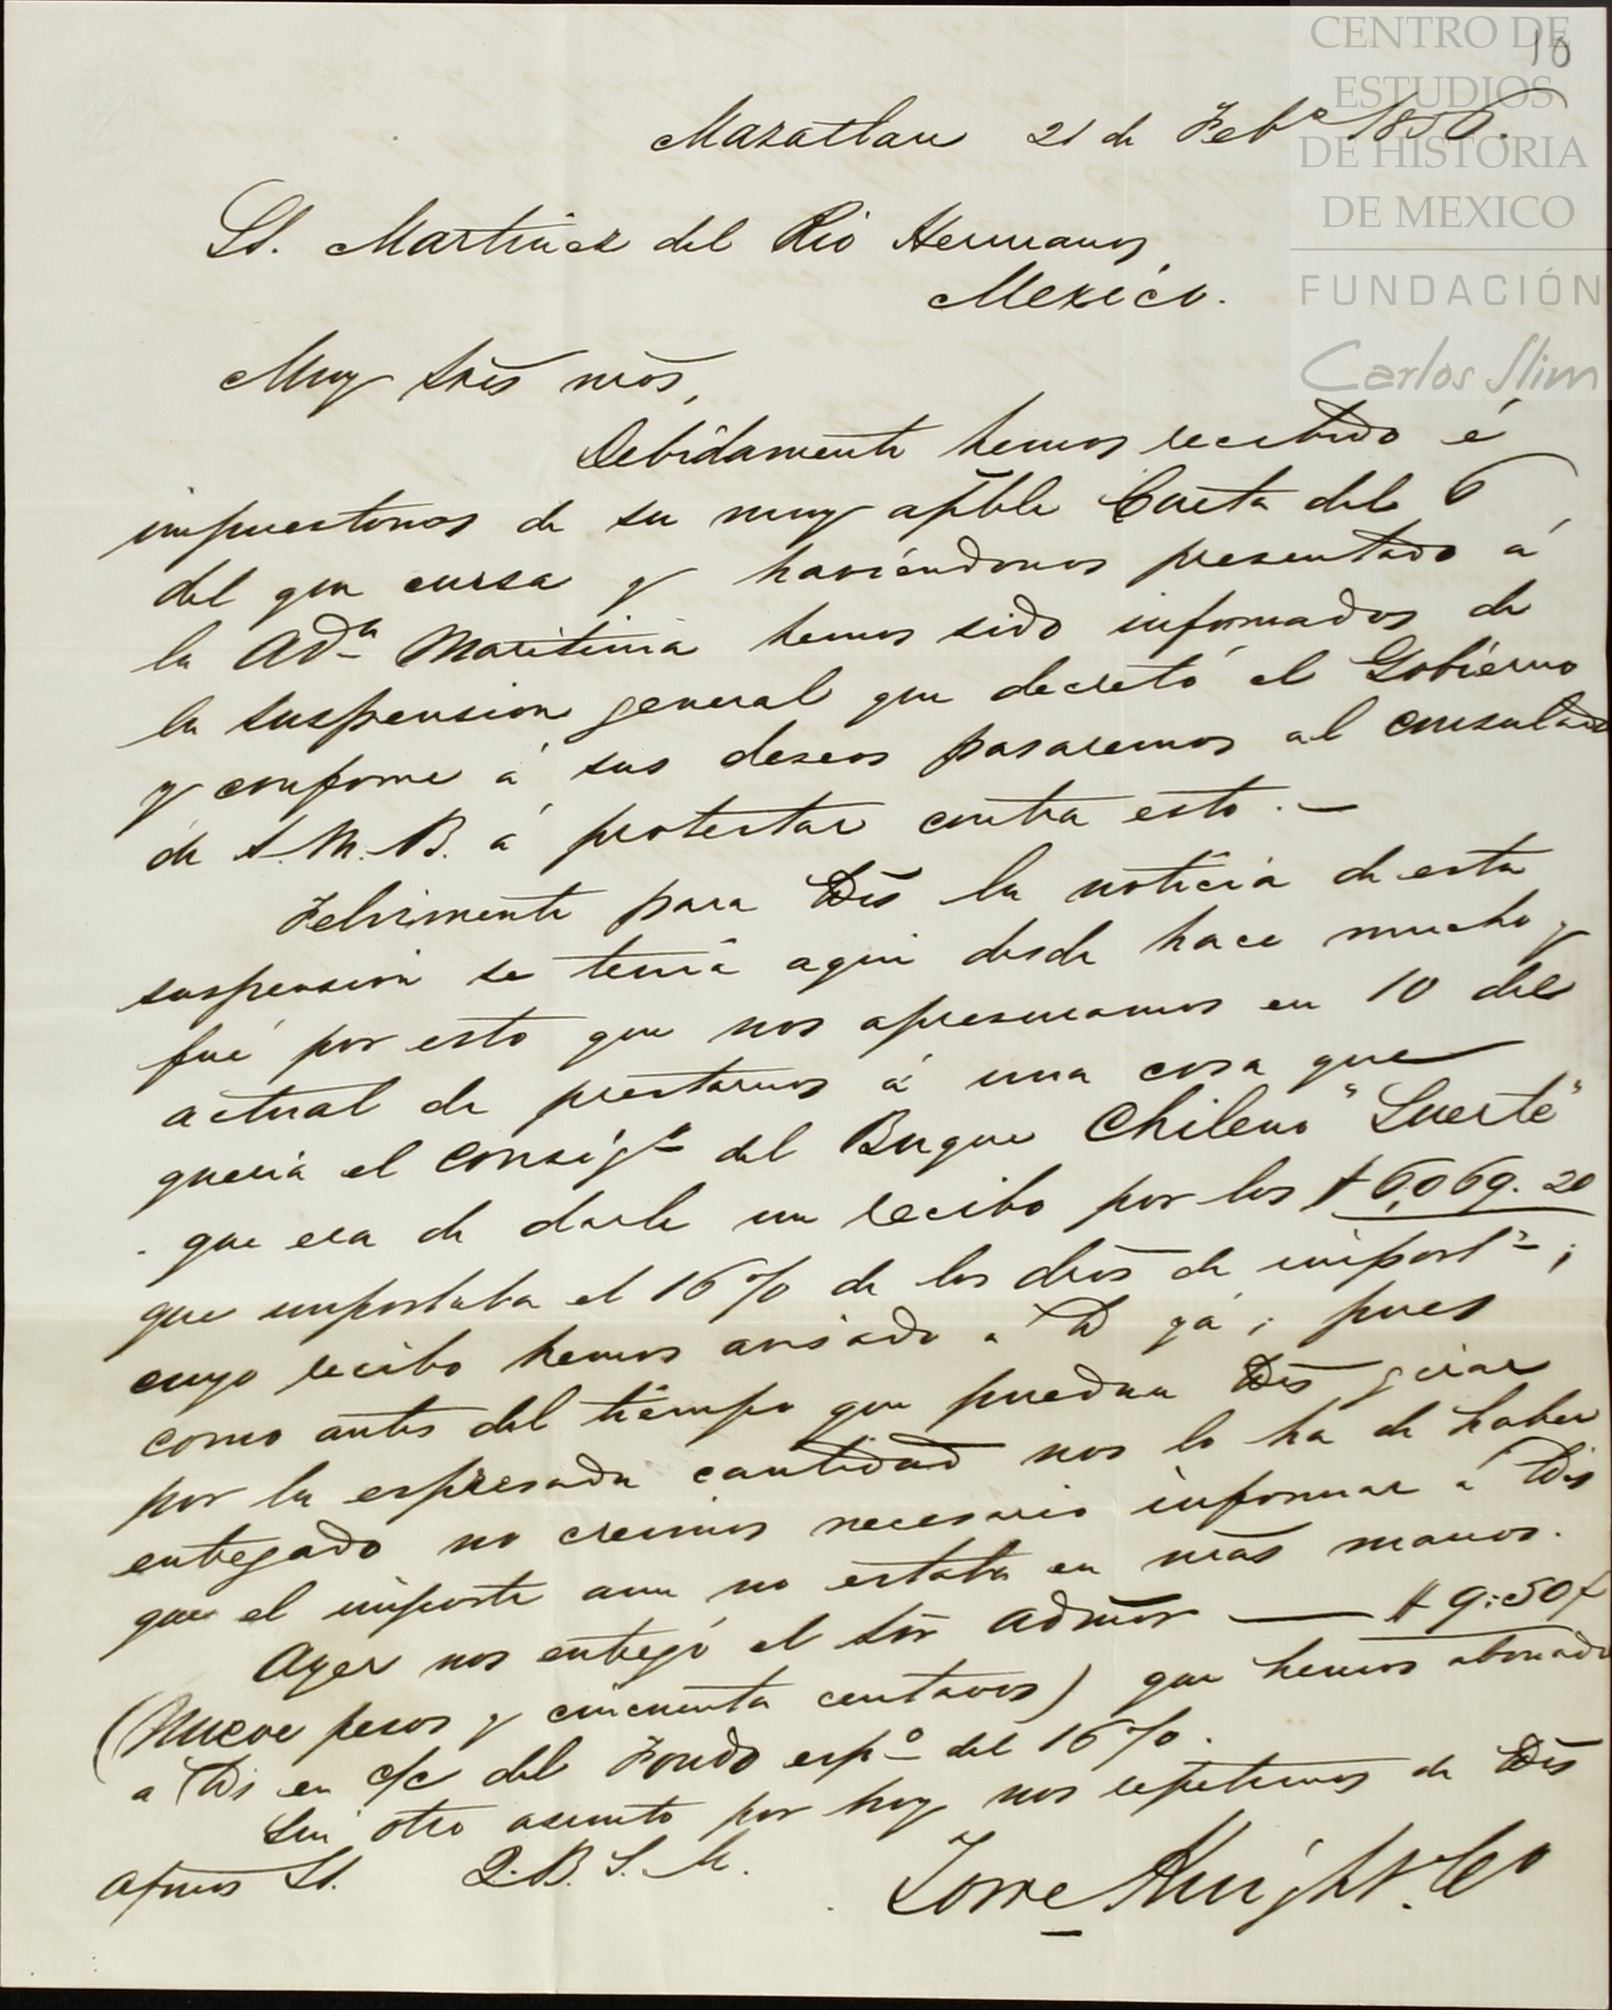 CENTRO DE
ESTUDIOS
DE HISTORIA
DE MEXICO
FUNDACIÓN
Carlos Slim
10
Mazatlan 21 de Feb.o 1856.
SS. Martinez del Rio Hermanos
Mexico.
Muy Sres nros,
Debidamente hemos recibido é
impuestonos de su muy apble Carta del 6
del que cursa y haviéndonos presentado á
la Adna Maritima hemos sido informados de
la suspension general que decretó el Gobierno
y conforme á sus deseos pasaremos al consulado
de S.M.B. á protestar contra esto.—
Felizmente para Uds la noticia de esta
suspension se tenia aqui desde hace mucho y
fué por esto que nos apresuramos en 10 del
actual de prestarnos á una cosa que
queria el consigo del Buque Chileno "Suerte"
que era de darle un recibo por los $6,069.20
que importaba el 16% de los dros de import.n;
cuyo recibo hemos avisado á Ud yá; pues
como antes del tiempo que puedan Uds girar
por la espresada cantidad nos lo ha de haber
entregado no creimos necesario informar á Uds
que el importe aun no estaba en nras manos.
Ayer nos entregó el Sor Admor — $9:50c
(Nueve pesos y cincuenta centavos) que hemos abonado
a Uds en c/c del Fondo esp.o del 16%.
Sin otro asunto por hoy nos repetimos de Uds
afmos SS. Q.B.S.M.
Torre Knight y Co